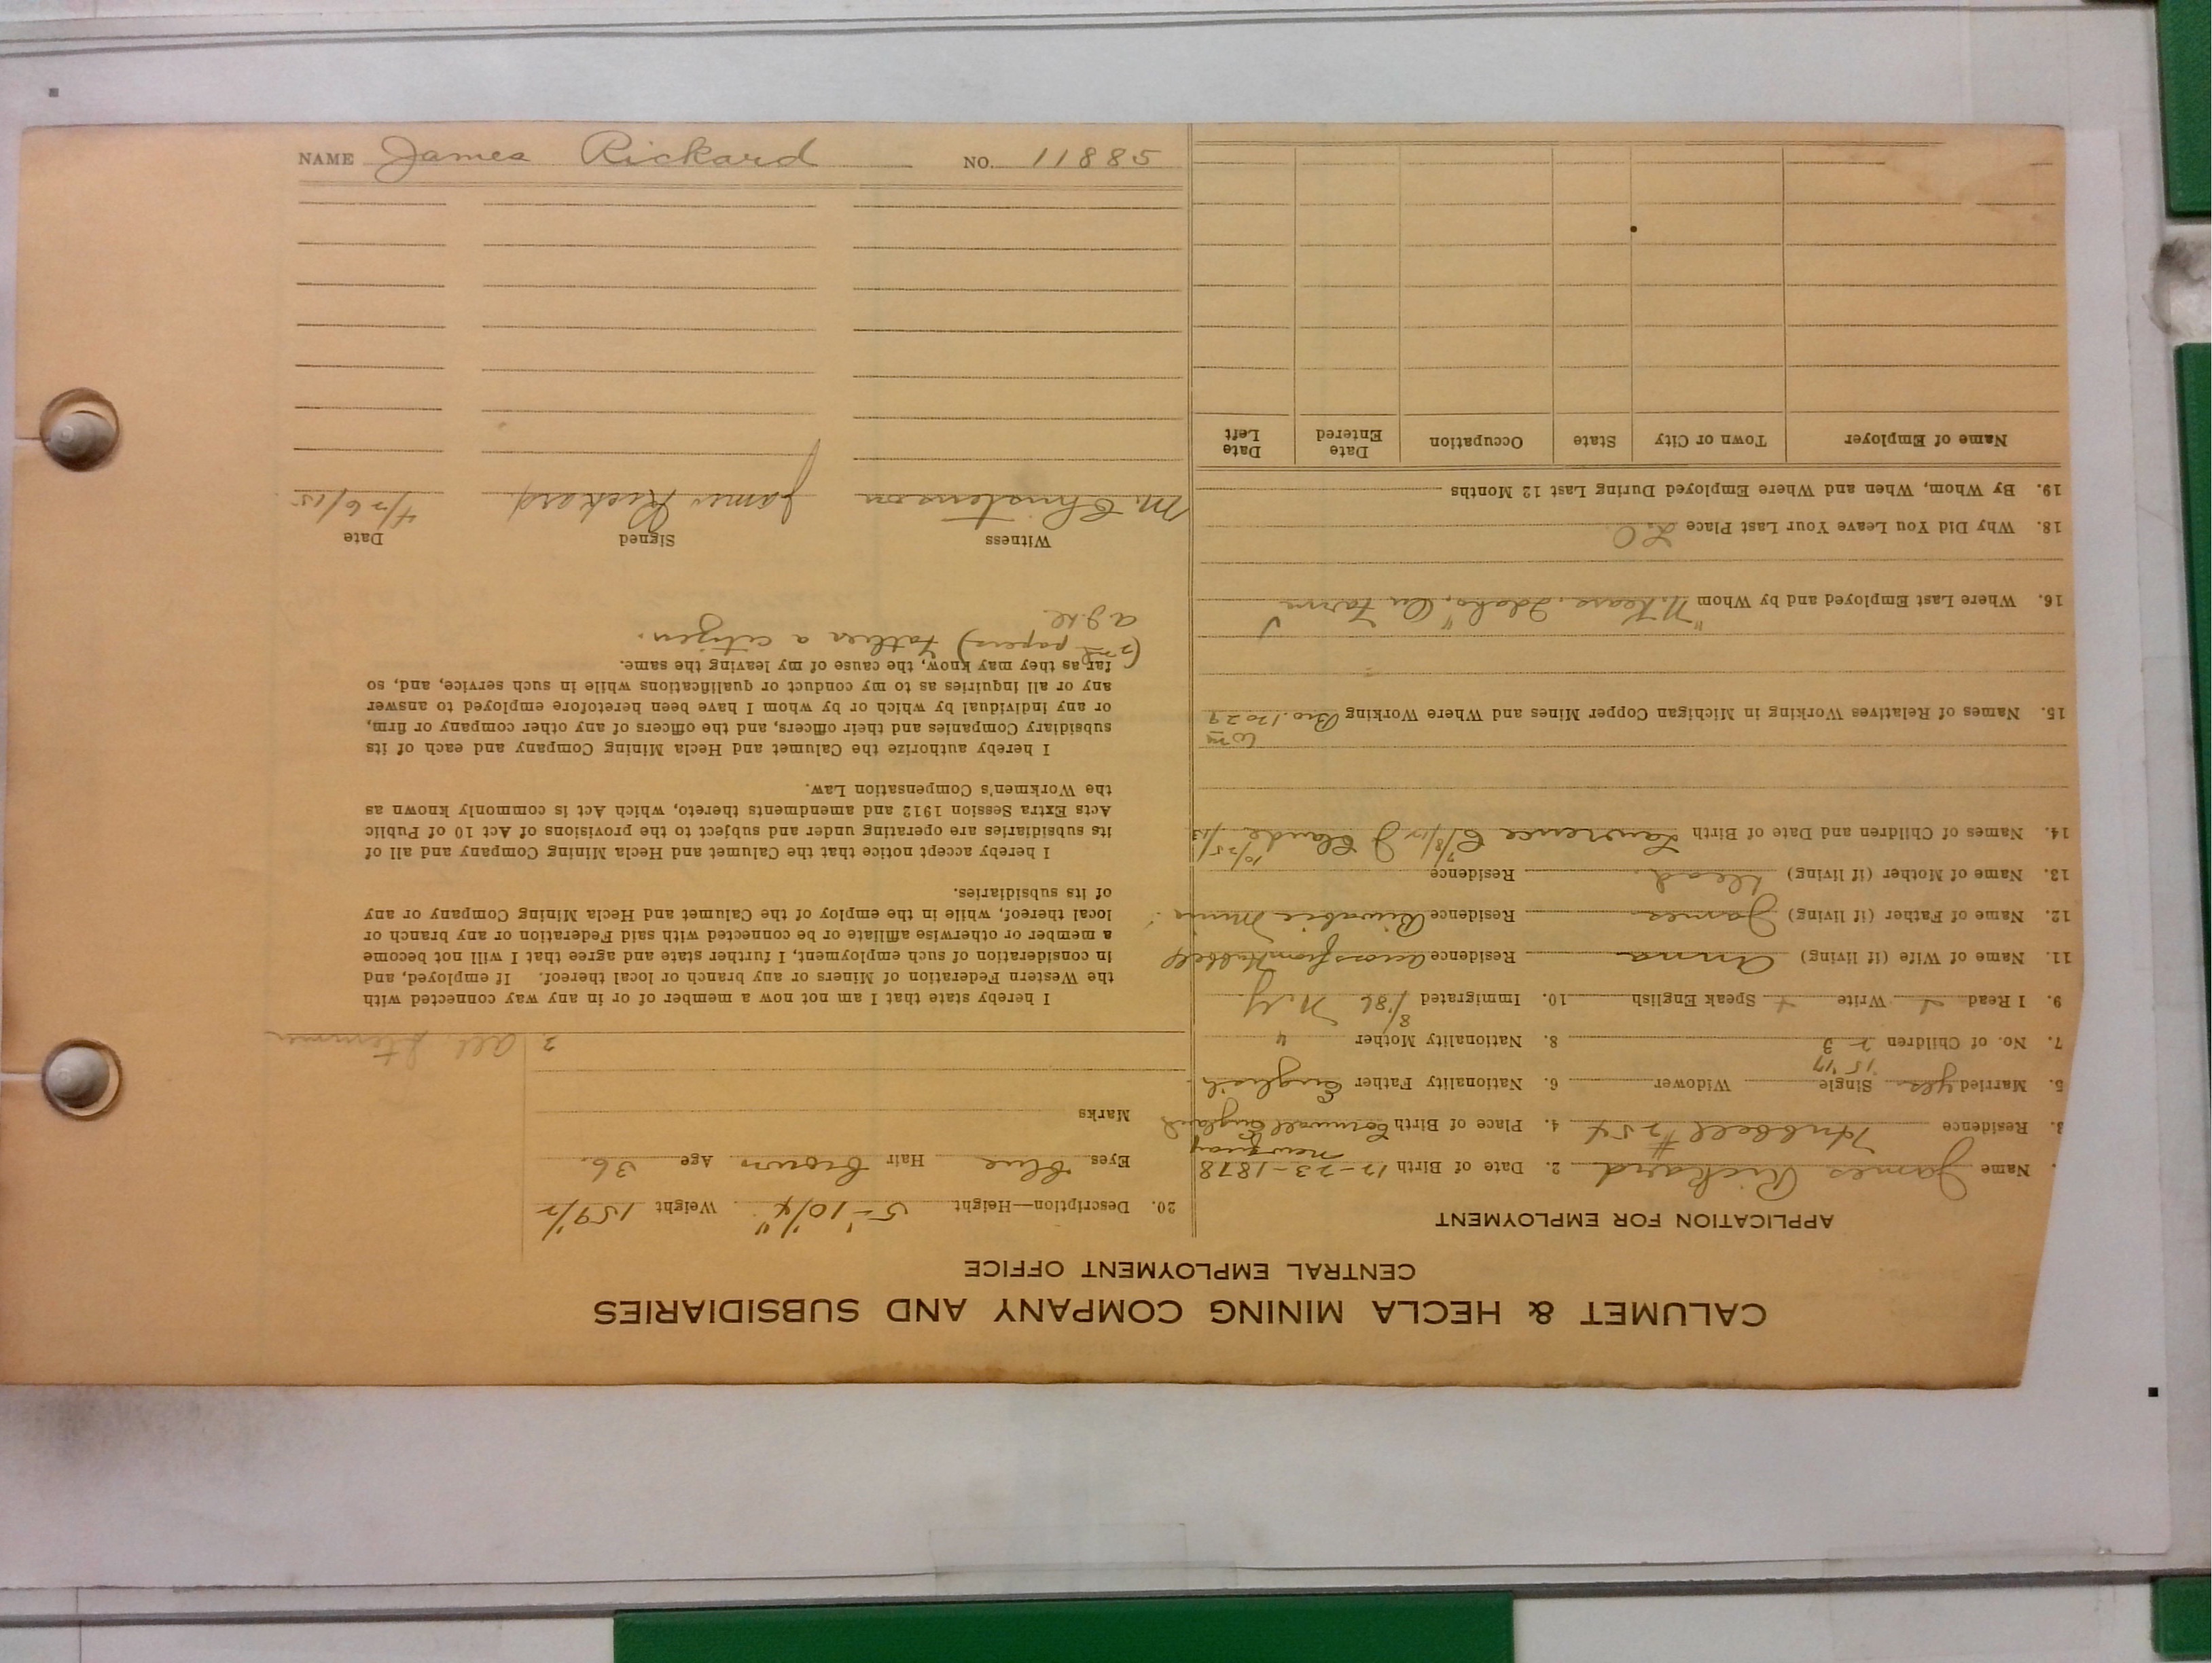 CALUMET & HECLA MINING COMPANY AND SUBSIDIARIES
CENTRAL EMPLOYMENT OFFICE
APPLICATION FOR EMPLOYMENT
Name James Rickard 2. Date of Birth 12-23-1878
Newquay
3. Residence Hubbell #254 4. Place of Birth Cornwall England
5. Married yes Single Widower 6. Nationality Father English
15 '17
7. No. of Children 2 3 8. Nationality Mother "
9. I Read Write Speak English 10. Immigrated 8/86 N.Y.
11. Name of Wife (if living) Anna Residence across from Hubbell
12. Name of Father (if living) James Residence Mine
13. Name of Mother (if living) Dead. Residence
14. Names of Children and Date of Birth Lawrence Claude 10/25/13
Wm
15. Names of Relatives Working in Michigan Copper Mines and Where Working Bro. 12029
16. Where Last Employed and by Whom Idaho, On Farm
18. Why Did You Leave Your Last Place
19. By Whom, When and Where Employed During Last 12 Months
Name of Employer Town or City State Occupation Date Entered Date Left
20. Description—Height 5-10 1/4" Weight 159 1/2
Eyes Blue Hair Brown Age 36
Marks
I hereby state that I am not now a member of or in any way connected with
the Western Federation of Miners or any branch or local thereof. If employed, and
in consideration of such employment, I further state and agree that I will not become
a member or otherwise affiliate or be connected with said Federation or any branch or
local thereof, while in the employ of the Calumet and Hecla Mining Company or any
of its subsidiaries.
I hereby accept notice that the Calumet and Hecla Mining Company and all of
its subsidiaries are operating under and subject to the provisions of Act 10 of Public
Acts Extra Session 1912 and amendments thereto, which Act is commonly known as
the Workmen's Compensation Law.
I hereby authorize the Calumet and Hecla Mining Company and each of its
subsidiary Companies and their officers, and the officers of any other company or firm,
or any individual by which or by whom I have been heretofore employed to answer
any or all inquiries as to my conduct or qualifications while in such service, and, so
far as they may know, the cause of my leaving the same.
(2nd papers) Father a citizen.
Witness Signed Date
M. Christenson James Rickard 4/26/15
NAME James Rickard NO. 11885